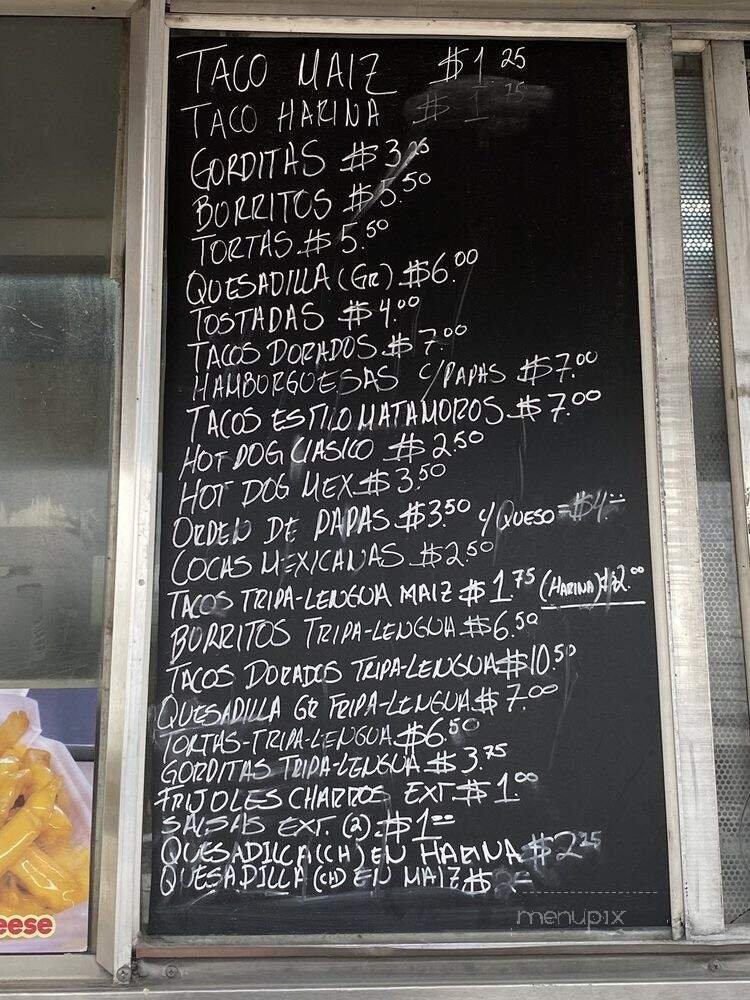 TACO MAIZ $1.25
TACO HARINA $1.75
GORDITAS $3.25
BORRITOS $5.50
TORTAS $5.50
QUESADILLA (GR) $6.00
TOSTADAS $4.00
TACOS DORADOS $7.00
HAMBORGUESAS C/PAPAS $7.00
TACOS ESTILO MATAMOROS $7.00
HOT DOG CLASICO $2.50
HOT DOG MEX $3.50
ORDEN DE PAPAS $3.50 Y/QUESO = $4.--
COCAS MEXICANAS $2.50
TACOS TRIPA-LENGUA MAIZ $1.75 (HARINA) $2.00
BURRITOS TRIPA-LENGUA $6.50
TACOS DORADOS TRIPA-LENGUA $10.50
QUESADILLA GR TRIPA-LENGUA $7.00
TORTAS-TRIPA-LENGUA $6.50
GORDITAS TRIPA-LENGUA $3.75
FRIJOLES CHARROS EXT. $1.00
SALSAS EXT. (2) $1--
QUESADILLA (CH) EN HARINA $2.25
QUESADILLA (CH) EN MAIZ $2--
menupix
eese